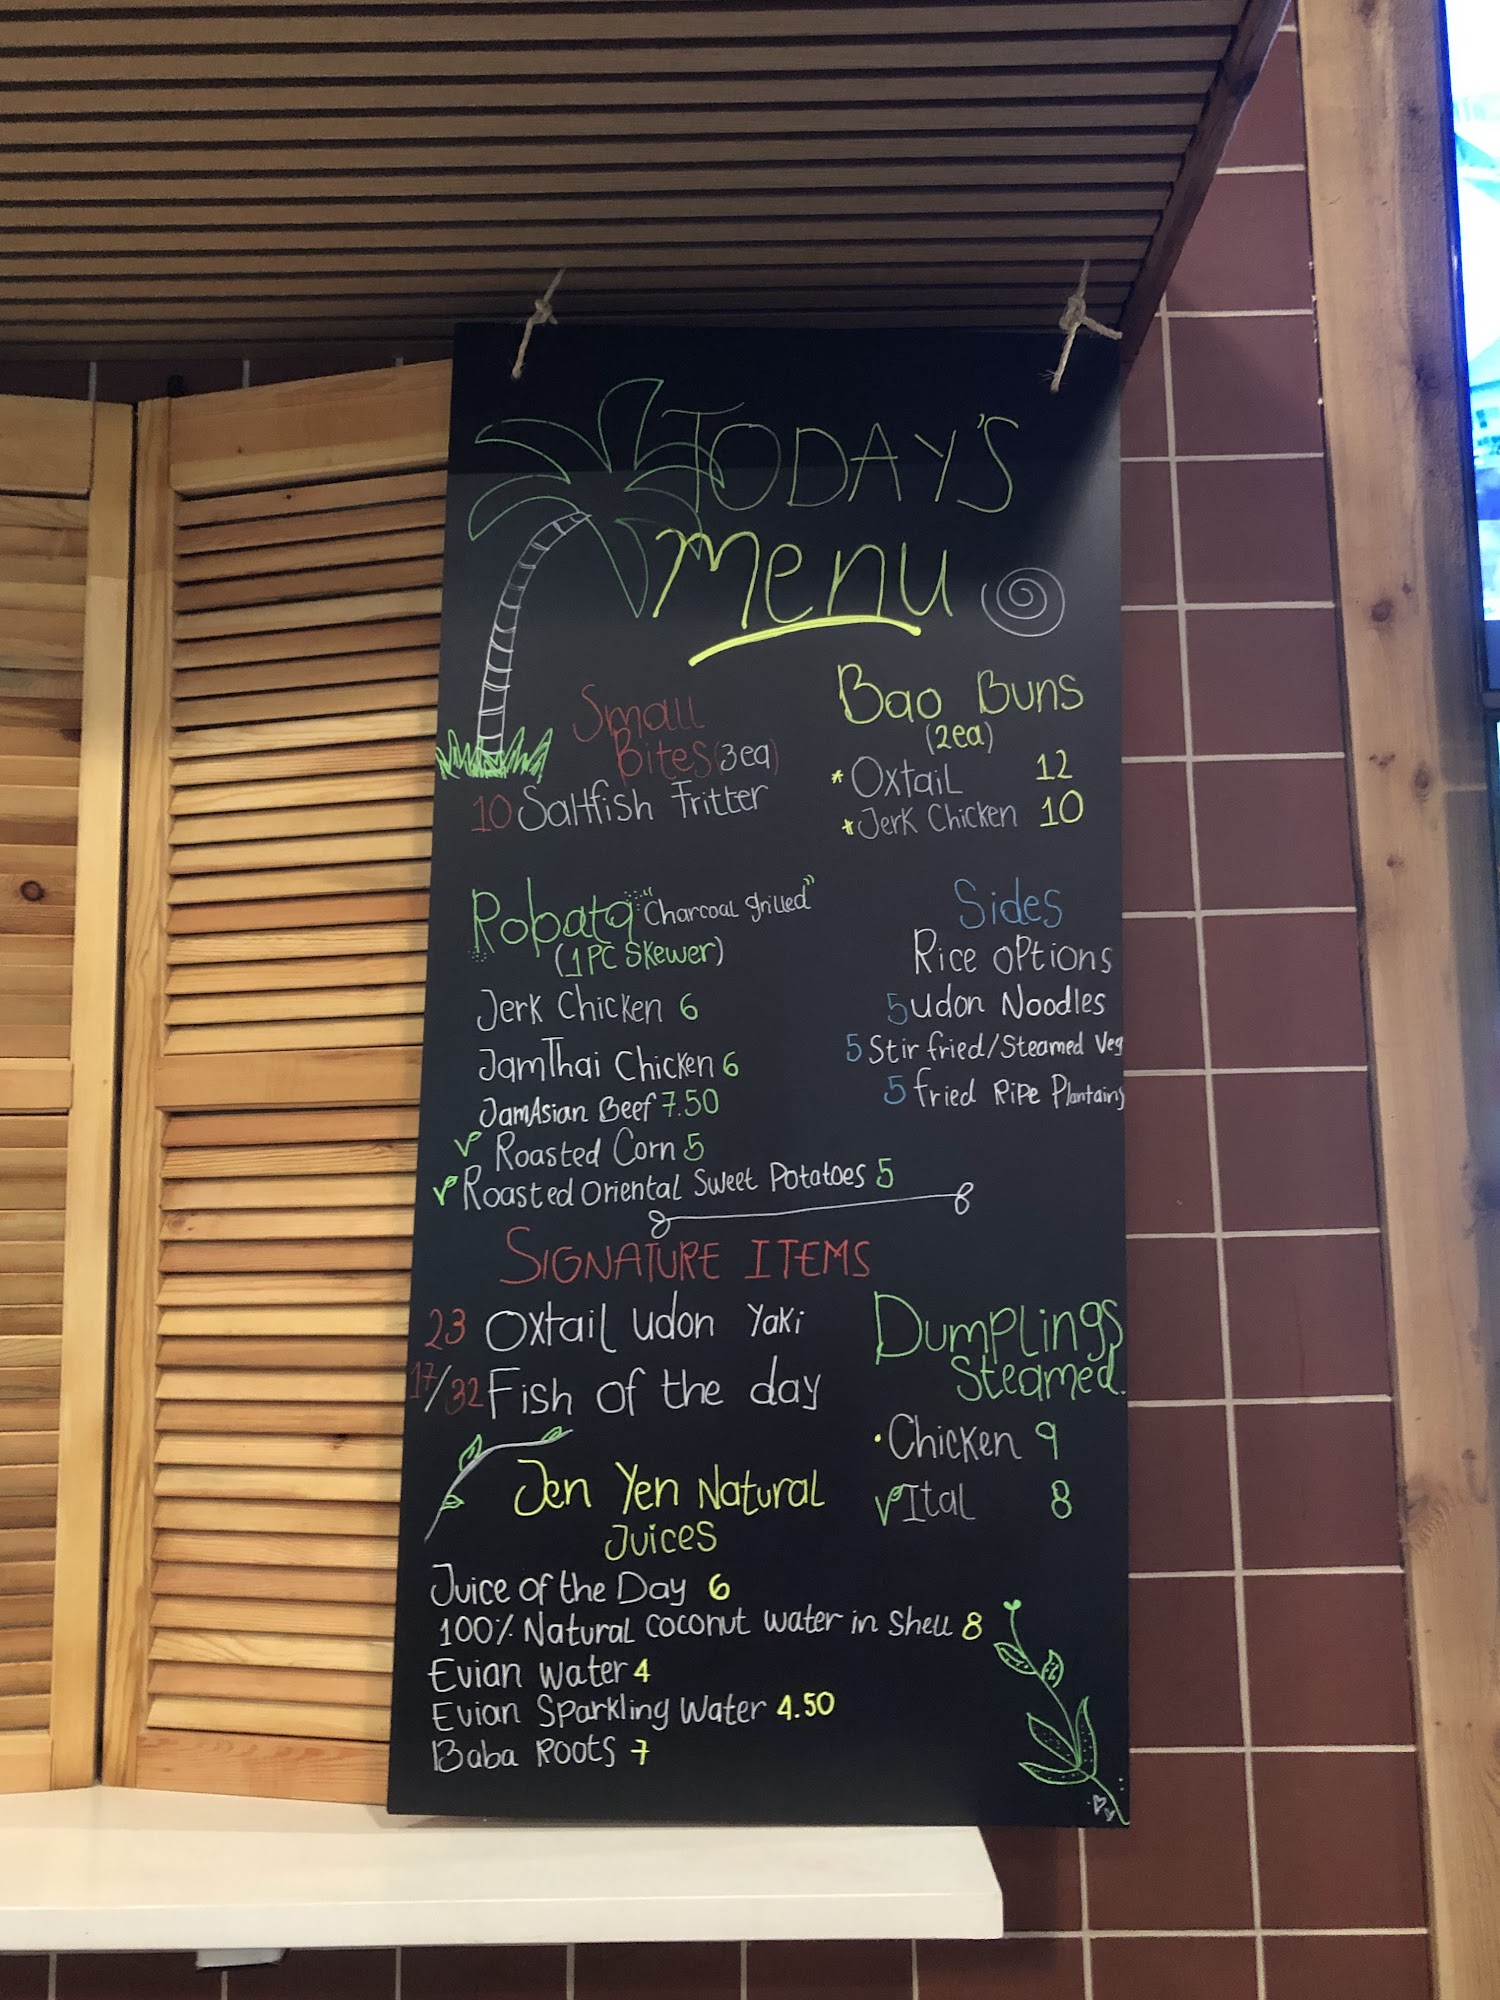 TODAY'S
Menu
Small
Bites (3ea)
10 Saltfish Fritter
Bao Buns
(2ea)
* Oxtail 12
* Jerk Chicken 10
Robata "Charcoal grilled"
(1PC Skewer)
Jerk Chicken 6
JamThai Chicken 6
JamAsian Beef 7.50
Roasted Corn 5
Roasted Oriental Sweet Potatoes 5
Sides
Rice Options
5 Udon Noodles
5 Stir fried/Steamed Veg
5 fried Ripe Plantains
SIGNATURE ITEMS
23 Oxtail Udon Yaki
17/32 Fish of the day
Dumplings
Steamed.
• Chicken 9
Ital 8
Jen Yen Natural
Juices
Juice of the Day 6
100% Natural coconut water in Shell 8
Evian water 4
Evian Sparkling Water 4.50
Baba Roots 7